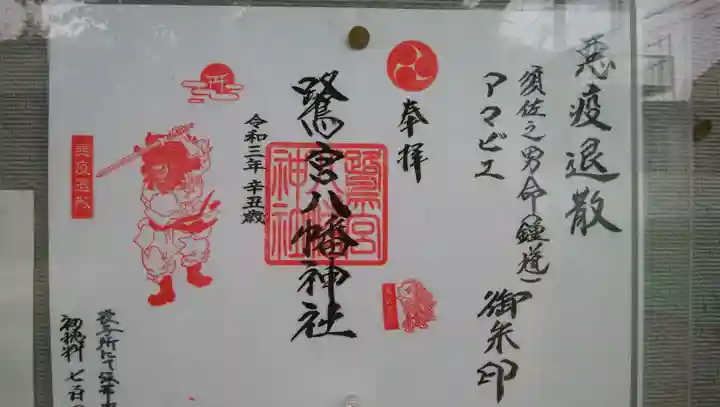 悪疫退散
須佐之男命(鍾馗)
アマビエ
御朱印
奉拝
鷺宮八幡神社
鷺宮八幡神社
令和三年 辛丑歳
悪疫退散
授与所にて
初穂料 七百